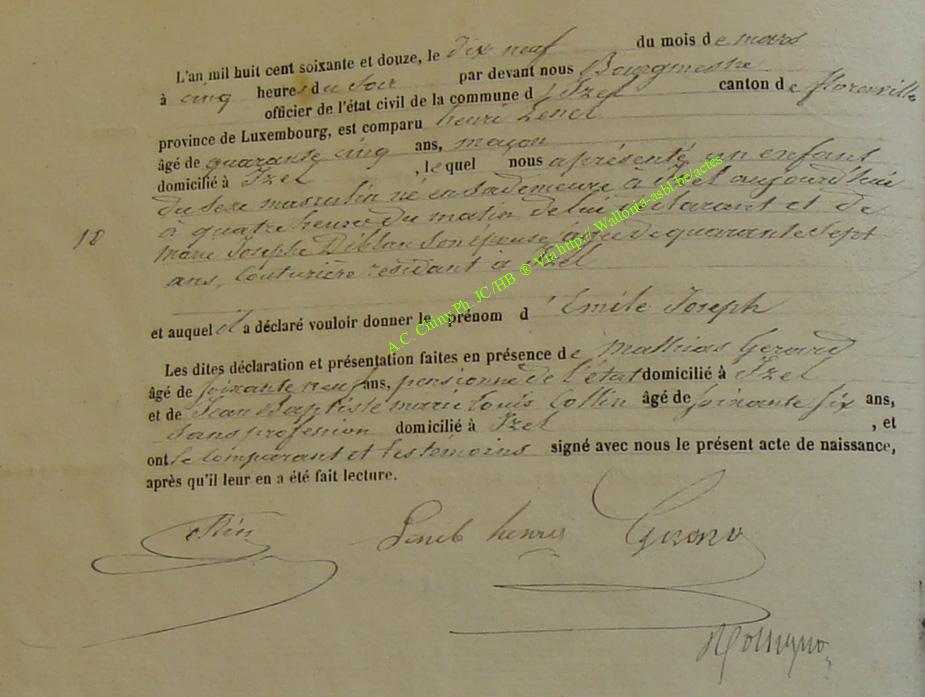 L'an mil huit cent soixante et douze, le dix neuf du mois de mars
à cinq heures du soir par devant nous Bourgmestre
officier de l'état civil de la commune d'Izel canton de florenville
province de Luxembourg, est comparu henri Lenel
âgé de quarante cinq ans, maçon
domicilié à Izel, lequel nous a présenté un enfant
du sexe masculin né en sa demeure à Izel aujourd'hui
à quatre heure du matin de lui déclarant et de
18
marie Joseph son épouse agée de quarante sept
ans, couturière residant à Izel
et auquel il a déclaré vouloir donner le prénom d'Emile Joseph
Les dites déclaration et présentation faites en présence de Mathias Gerard
âgé de soixante neuf ans, pensionné de l'état domicilié à Izel
et de Jean Baptiste marie louis Collin âgé de soixante six ans,
sans profession domicilié à Izel, et
ont le comparant et les témoins signé avec nous le présent acte de naissance,
après qu'il leur en a été fait lecture.
henri Gerard
A.C. Chiny Ph. JC/HB ® Via http://Wallonia-asbl.be/actes